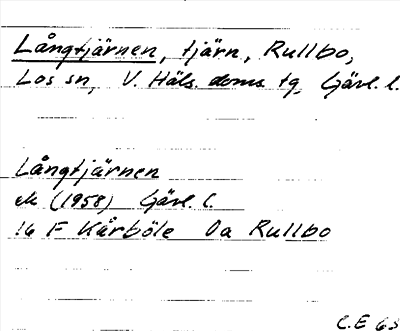 Långtjärnen, tjärn, Rullbo,
Los sn, V. Häls. doms. tg, Gävl. l.
Långtjärnen
ek (1958) Gävl. l.
16 F Kårböle Da Rullbo
C.E 63